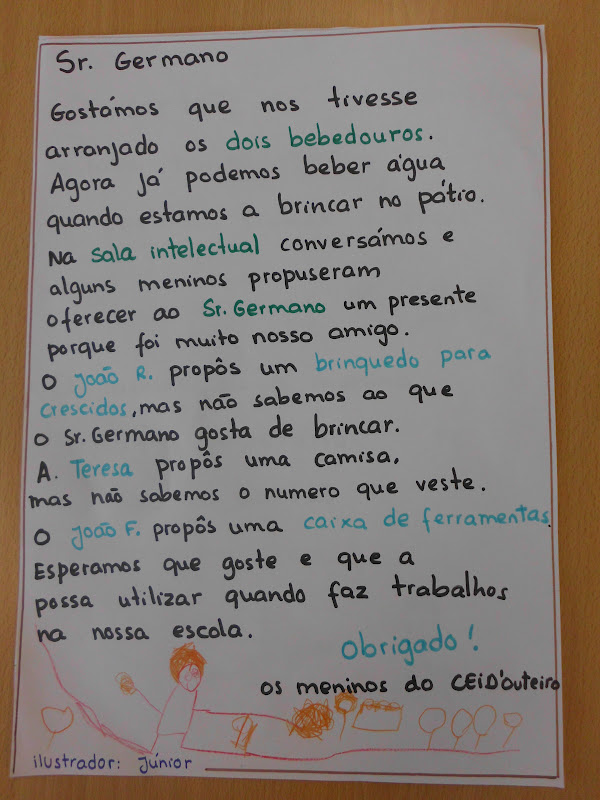 Sr. Germano
Gostámos que nos tivesse
arranjado os dois bebedouros.
Agora já podemos beber água
quando estamos a brincar no pátio.
Na sala intelectual conversámos e
alguns meninos propuseram
oferecer ao Sr. Germano um presente
porque foi muito nosso amigo.
O João R. propôs um brinquedo para
crescidos, mas não sabemos ao que
o Sr. Germano gosta de brincar.
A. Teresa propôs uma camisa,
mas não sabemos o numero que veste.
O João F. propôs uma caixa de ferramentas.
Esperamos que goste e que a
possa utilizar quando faz trabalhos
na nossa escola.
Obrigado!
os meninos do CEiD'outeiro
ilustrador: Júnior